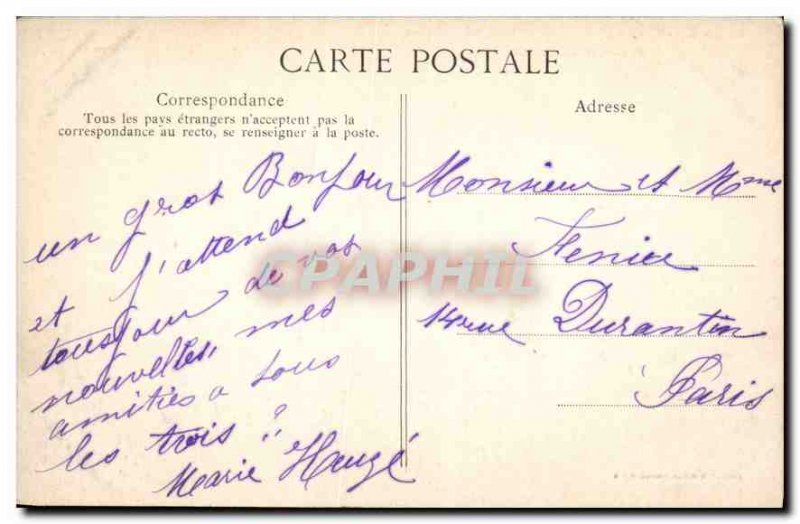 CARTE POSTALE
Correspondance
Tous les pays étrangers n'acceptent pas la
correspondance au recto, se renseigner à la poste.
un gros Bonjour
et j'attend
tousjour de vos
nouvelles, mes
amitiés a tous
les trois
Marie
Adresse
Monsieur et Mme
Fenice
14 rue Durantin
Paris
CPAPHIL